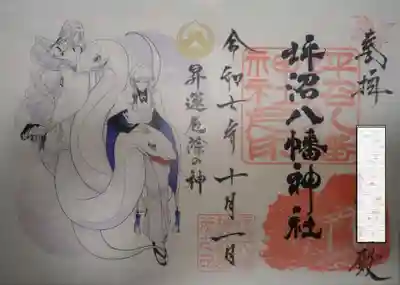 奉拝
殿
坪沼八幡神社
令和七年十月一日
昇運厄除の神